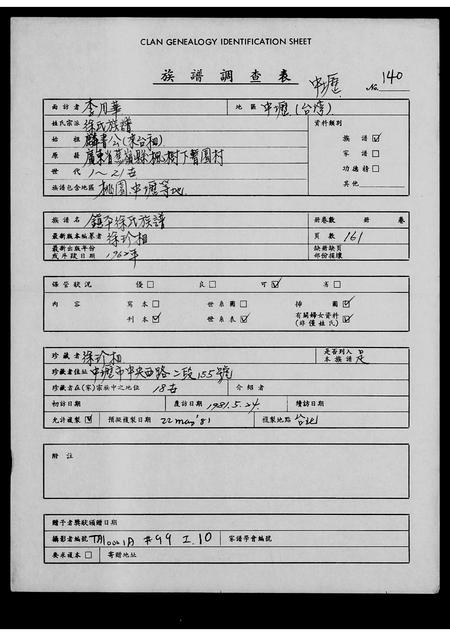 CLAN GENEALOGY IDENTIFICATION SHEET
族譜調查表 中壢 No. 140
面訪者 李月華 地區 中壢(台灣)
姓氏宗派 徐氏族譜 資料類別
始祖 麟書公(來台祖) 族譜 ☑
原籍 廣東省蕉嶺縣 樹下薯園村 家譜 □
世代 1~21世 功德榜 □
族譜包含地區 桃園中壢等地. 其他
族譜名 鎮平徐氏族譜 冊卷數 冊 卷
最新版本編纂者 徐珍相 頁數 161
最新出版年份或斥段日期 1962年 缺冊缺頁部份損壞
保管狀況 優 □ 良 □ 可 ☑ 劣 □
內容 寫本 □ 世系圖 □ 插圖 ☑
刊本 ☑ 世系表 ☑ 有關婦女資料(非僅姓氏) ☑
珍藏者 徐珍相 是否列入本族譜 是
珍藏者住址 中壢市中央西路二段155號
珍藏者在(家)宗族中之地位 18世 介紹者
初訪日期 複訪日期 1981.5.24. 續訪日期
允許複製 ☑ 預擬複製日期 22 may '81 複製地點 台北
附註
贈予者獎狀頒贈日期
攝影者編號 #99 I.10 家譜學會編號
要求複本 □ 寄贈地址